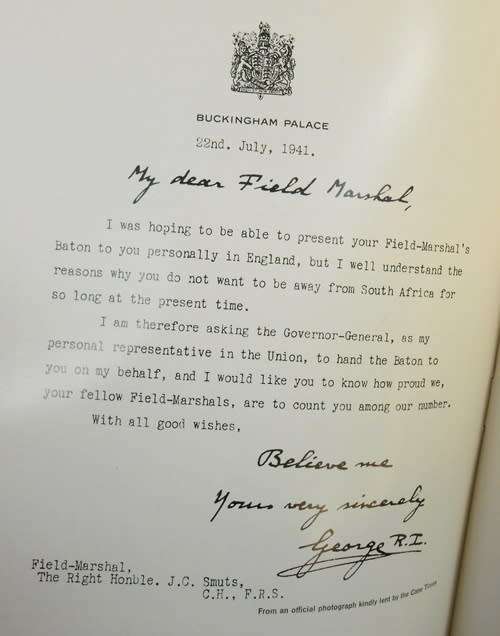 BUCKINGHAM PALACE
22nd. July, 1941.
My dear Field Marshal,
I was hoping to be able to present your Field-Marshal's
Baton to you personally in England, but I well understand the
reasons why you do not want to be away from South Africa for
so long at the present time.
I am therefore asking the Governor-General, as my
personal representative in the Union, to hand the Baton to
you on my behalf, and I would like you to know how proud we,
your fellow Field-Marshals, are to count you among our number.
With all good wishes,
Believe me
Yours very sincerely
George R.I.
Field-Marshal,
The Right Honble. J.C. Smuts,
C.H., F.R.S.
From an official photograph kindly lent by the Cape Times